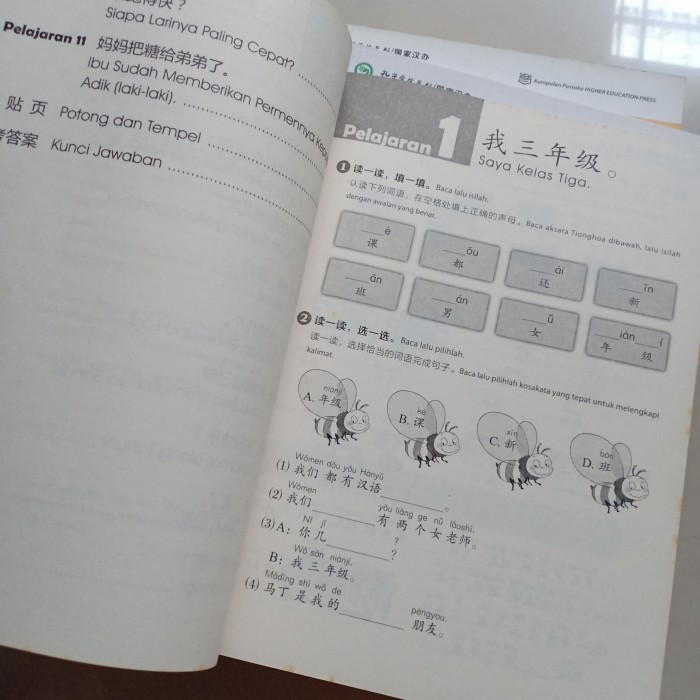 Siapa Larinya Paling Cepat?
Pelajaran 11 妈妈把糖给弟弟了。
Ibu Sudah Memberikan Permennya
Adik (laki-laki).
贴 页 Potong dan Tempel
答案 Kunci Jawaban
国家汉办
Kumpulan Pustaka HIGHER EDUCATION PRESS
Pelajaran 1 我三年级。
Saya Kelas Tiga.
1 读一读，填一填。Baca lalu isilah.
认读下列词语，在空格处填上正确的声母。Baca aksara Tionghoa dibawah, lalu isilah
dengan awalan yang benar.
___è ___ōu ___ái ___īn
课 都 还 新
___ān ___án ___ǚ ___ián___í
班 男 女 年 级
2 读一读，选一选。Baca lalu pilihlah.
读一读，选择恰当的词语完成句子。Baca lalu pilihlah kosakata yang tepat untuk melengkapi
kalimat.
niánjí kè xīn bān
A. 年级 B. 课 C. 新 D. 班
Wǒmen dōu yǒu Hànyǔ
(1) 我们 都 有 汉语________。
Wǒmen yǒu liǎng ge nǚ lǎoshī.
(2) 我们________有 两 个 女 老师。
Nǐ jǐ ?
(3) A: 你 几________?
Wǒ sān niánjí.
B: 我 三 年级。
Mǎdīng shì wǒ de péngyou.
(4) 马丁 是 我 的________朋友。